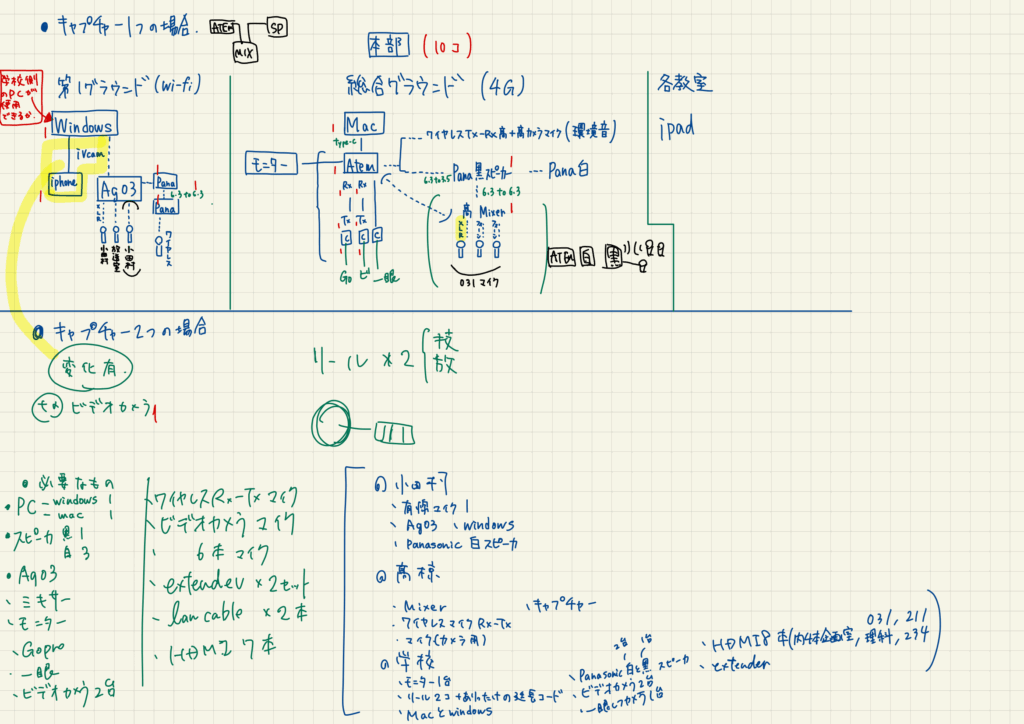 • キャプチャー1つの場合.
ATEM
SP
MIX
本部 (10コ)
学校側
のPCが
使用
できるか.
第1グラウンド(wi-fi)
Windows
iVcam
iphone
Ag03
Pana
6.3 to 6.3
Pana
XLR
小田村
放送室
小田村
ワイヤレス
総合グラウンド (4G)
Mac
type-c
モニター
Atem
ワイヤレスTx-Rx高+高カメラマイク(環境音)
6.3 to 3.5
Pana黒スピーカー
Pana白
6.3 to 6.3
Rx Rx
Tx Tx
C C C
Go ビ 一眼
高 Mixer
XLR
031マイク
ATEM 白 黒
各教室
ipad
キャプチャー2つの場合
変化有.
ビデオカメラ1
リール×2
技
放
• 必要なもの
• PC-windows 1
-mac 1
• スピーカ黒1
白3
• Ag03
、ミキサー
、モニター
、Gopro
、一眼
、ビデオカメラ2台
、ワイヤレスRx-Txマイク
、ビデオカメラマイク
、6本マイク
、extender×2セット
、lan cable ×2本
、HDMI 7本
小田村
、有線マイク1
、Ag03 、windows
、Panasonic白スピーカ
高椋
、Mixer 、キャプチャー
、ワイヤレスマイクRx-Tx
、マイク(カメラ用)
学校
、モニター1台
、リール2コ+ありったけの延長コード
、Macとwindows
2台 1台
、Panasonic白と黒スピーカ
、ビデオカメラ2台
、一眼レフカメラ1台
031, 211
、HDMI8本(内4本企画室, 理科, 234
、extender